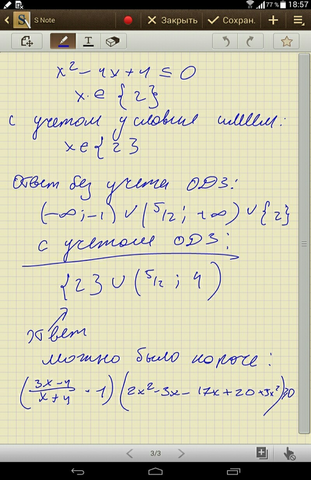 18:57
77%
S Note
Закрыть
Сохран.
T
x² - 4x + 4 ≤ 0
x ∈ {2}
с учетом условия имеем:
x ∈ {2}
Ответ без учета ОДЗ:
(-∞; -1) ∪ (5/2; +∞) ∪ {2}
с учетом ОДЗ:
{2} ∪ (5/2; 4)
ответ
можно было короче:
((3x-4)/(x+4) - 1)(2x² - 3x - 17x + 20 + 3x²) ≥ 0
3/3